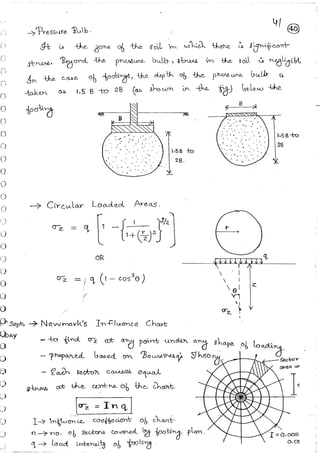 41
40
→ Pressure Bulb.
It is the zone of the soil in which there is significant
stress. Beyond the pressure bulb, stress in the soil is negligible
In the case of footings, the depth of the pressure bulb is
taken as 1.5 B to 2B (as shown in the fig) below the
footing
B
B
1.5B to
2B.
1.5B to
2B
→ Circular Loaded Areas.
σz = q [1 - {1 / (1 + (r/z)²)}^3/2]
r
OR
q
σz = q (1 - cos³θ)
θ
z
σz
Sept
DAY
→ Newmark's Influence Chart
- to find σz at any point under any shape of loading.
- prepared based on Boussinesq's Theory.
- Each sector causes equal
stress at the centre of the chart.
Sector
area
σz = I n q
I → Influence coefficient of chart.
n → no. of sectors covered by footing plan.
q → load intensity of footing
I = 0.005